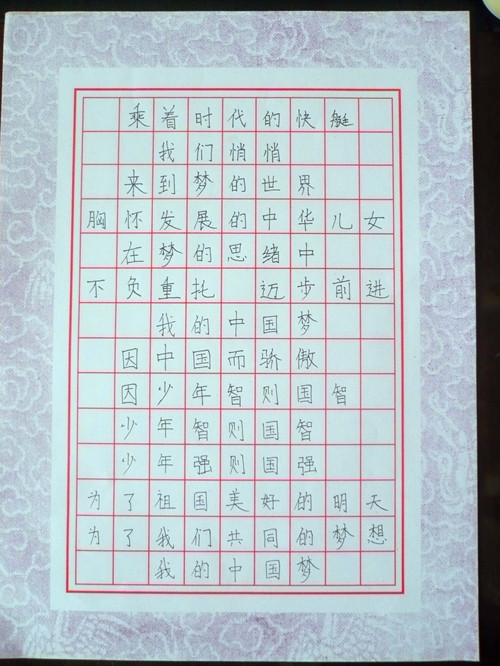 乘着时代的快艇
我们悄悄
来到梦的世界
胸怀发展的中华儿女
在梦的思绪中
不负重托 迈步前进
我的中国梦
因中国而骄傲
因少年智则国智
少年智则国智
少年强则国强
为了祖国美好的明天
为了我们共同的梦想
我的中国梦